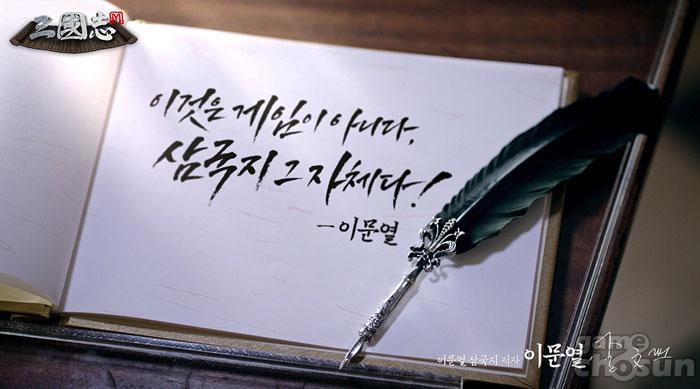 三國志 M
이것은 게임이 아니다,
삼국지 그 자체다!
-이문열
이문열 삼국지 저자 이문열
game
chosun